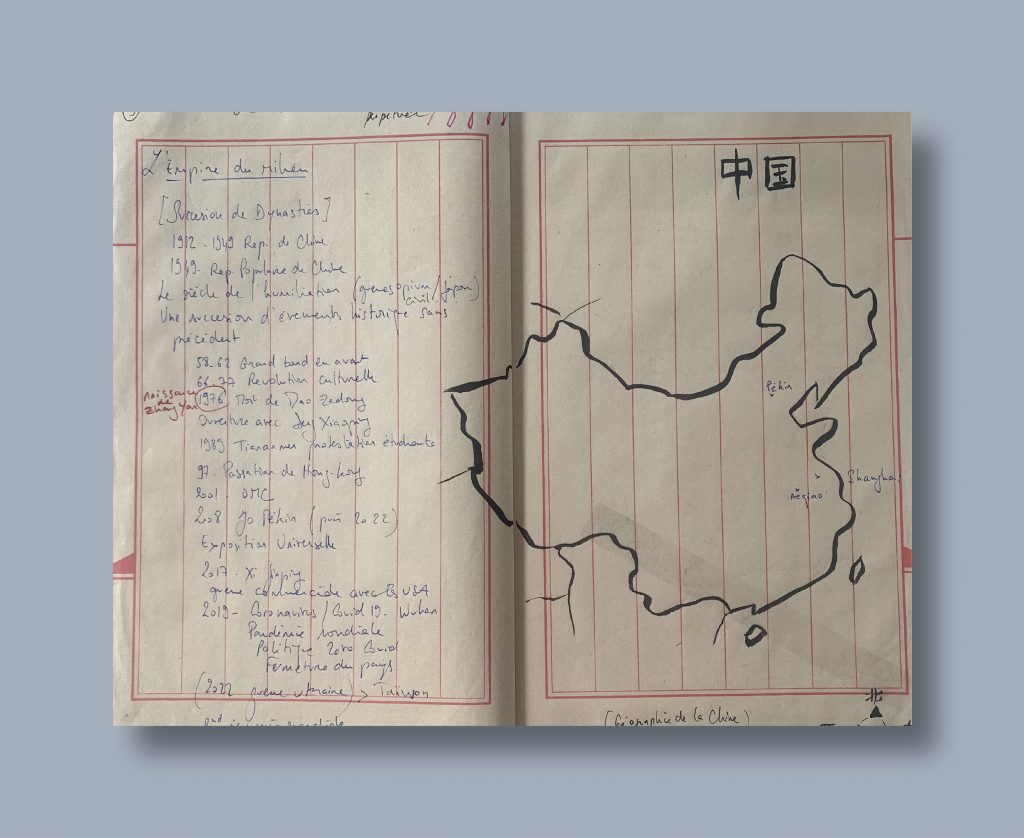 perpétuel
L'Empire du milieu
[Succession de Dynasties]
1912 - 1949 Rep. de Chine
1949. Rep. Populaire de Chine
Le siècle de l'humiliation (guerres opium/japon)
civil
Une succession d'évements historique sans
précédent
58-62 Grand bond en avant
66-77 Revolution culturelle
naissance
de
Zhang Yan
1976 Mort de Dao Zedong
Ouverture avec Deng Xiaoping
1989 Tiananmen protestation étudiante
97. Passation de Hong-Kong
2001. OMC
2008 Jo Pékin (puis 2022)
Exposition Universelle
2017. Xi Jinping
guerre commerciale avec les USA
2019 - Coronavirus / Covid 19. Wuhan
Pandémie mondiale
Politique Zero Covid
Fermeture du pays
(2022 guerre Ukraine) > Taiwan
中国
Pékin
Shanghai
北
(Géographie de la Chine)